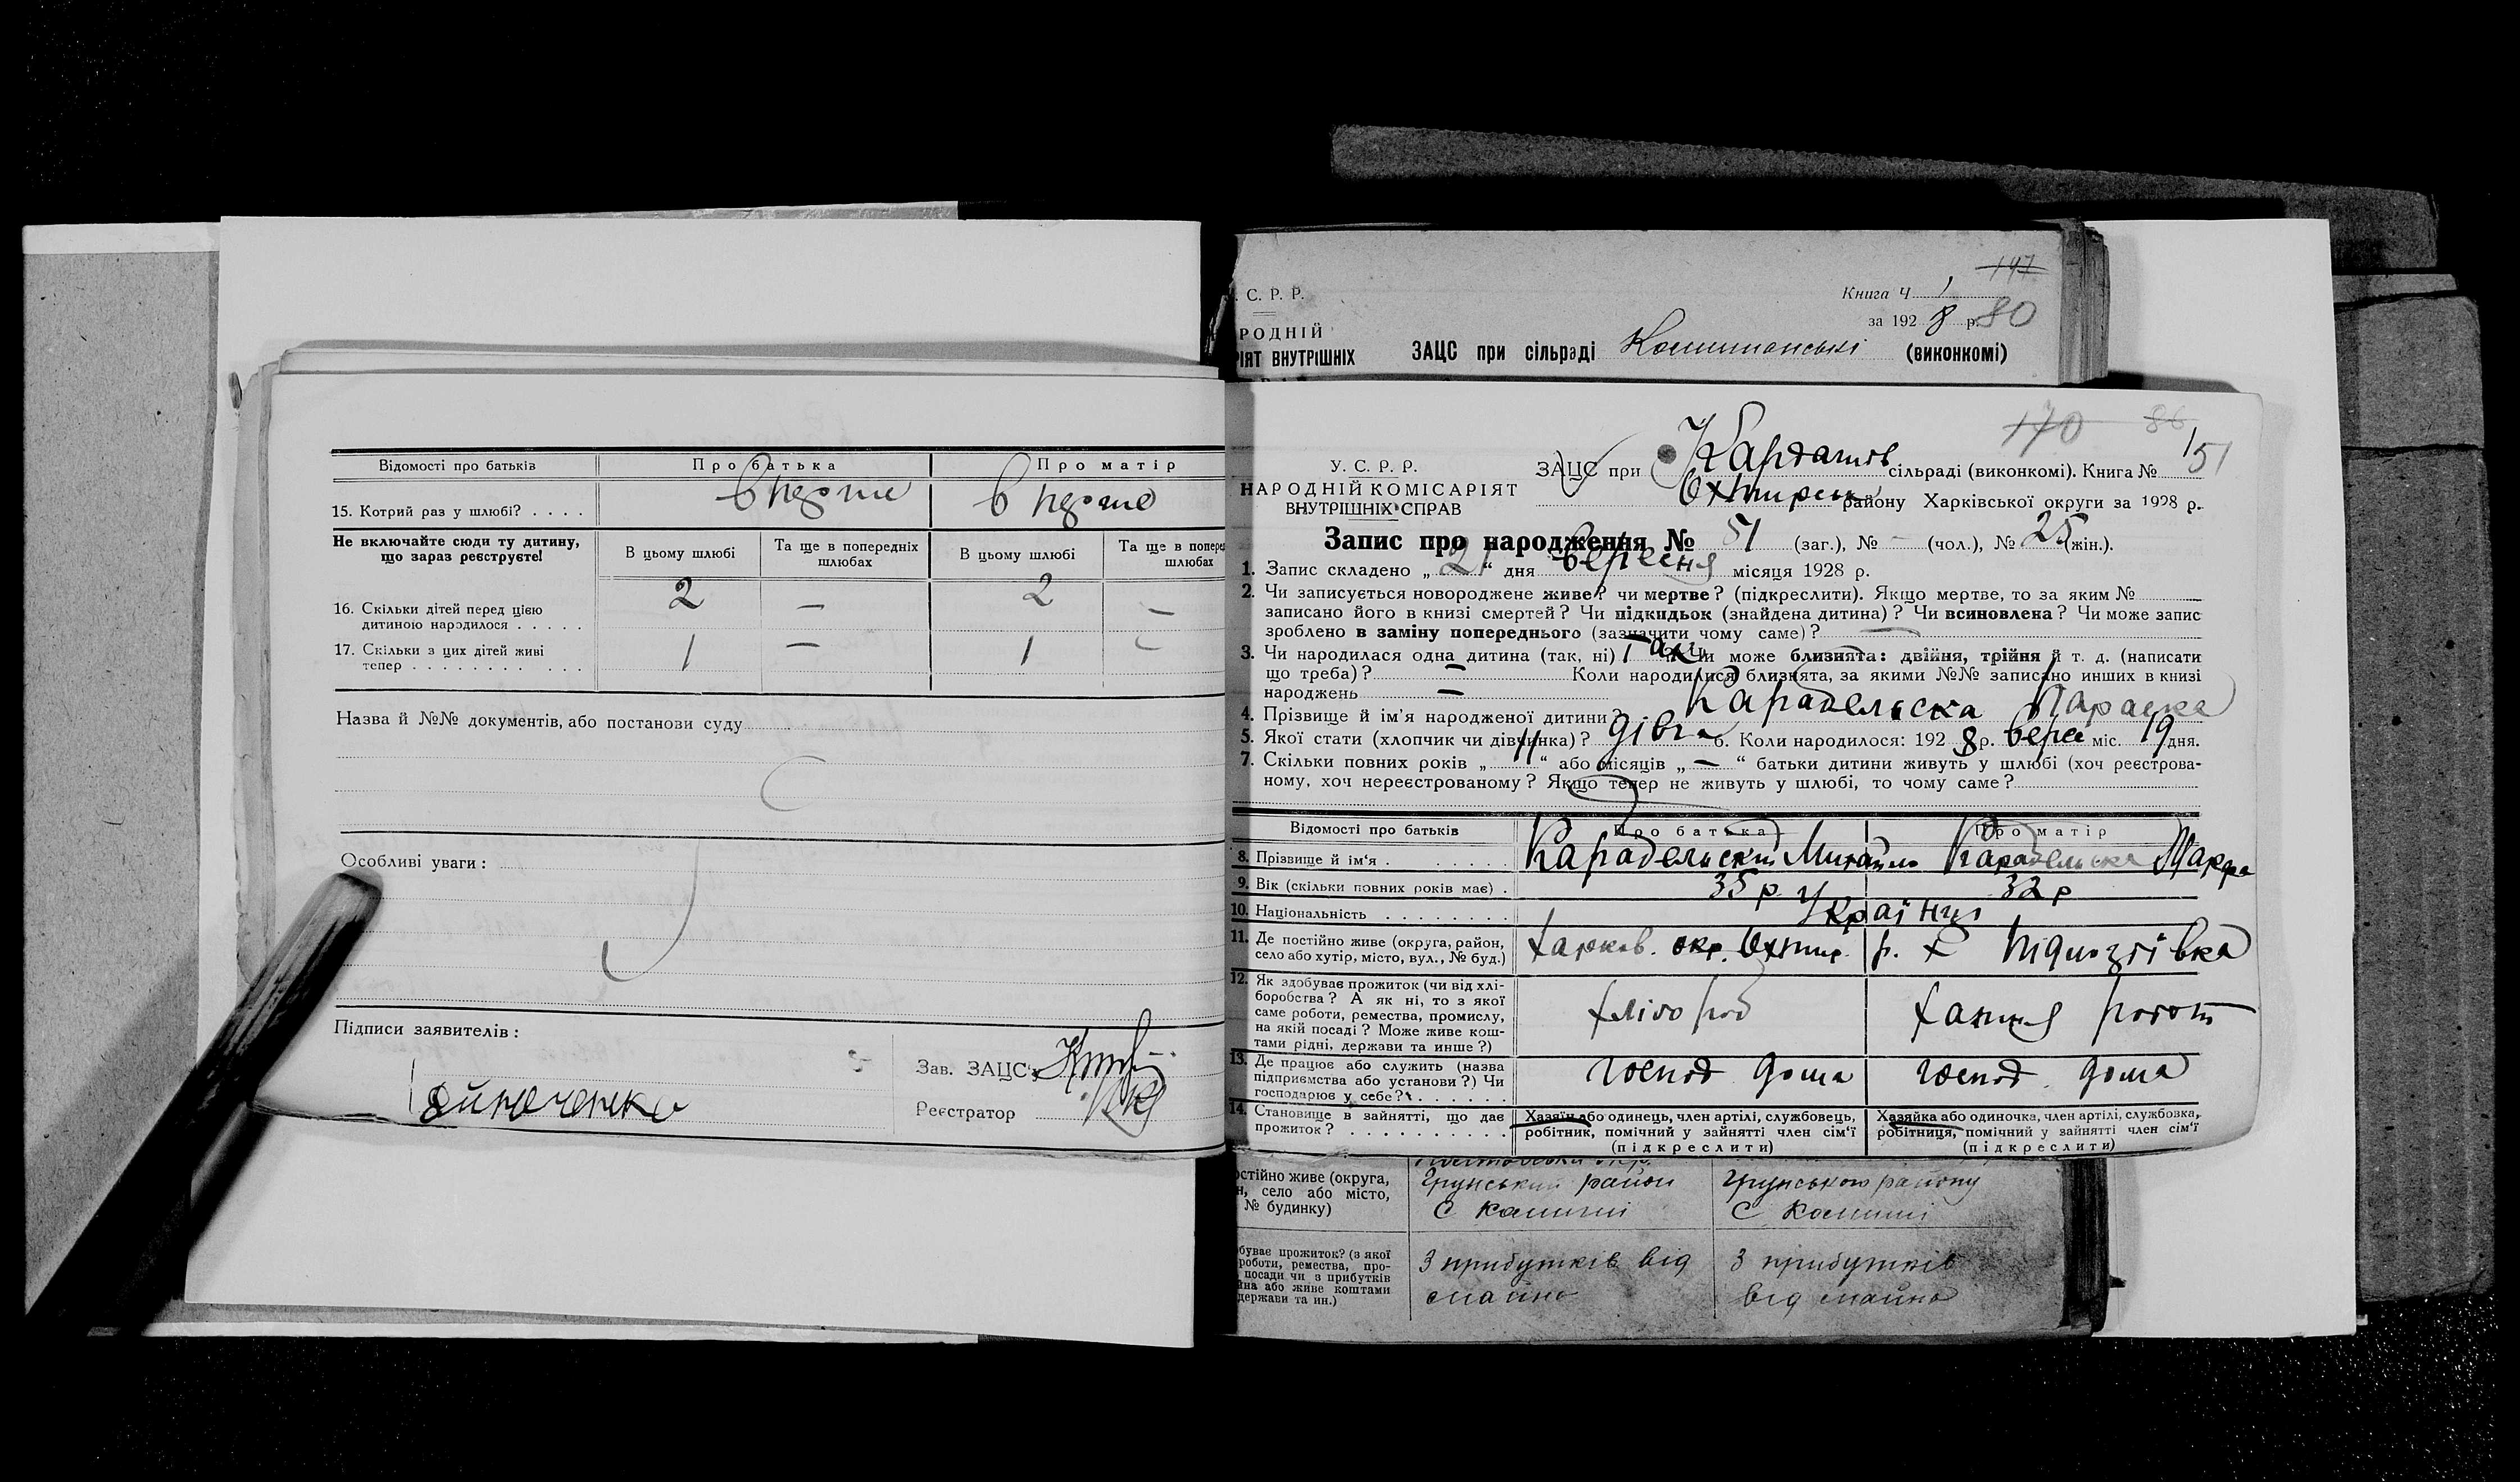 Відомості про батьків Про батька Про матір
15. Котрий раз у шлюбі? . . . .
Не включайте сюди ту дитину,
що зараз реєструєте!
В цьому шлюбі Та ще в попередніх шлюбах В цьому шлюбі Та ще в попере
шлюбах
16. Скільки дітей перед цією
дитиною народилося . . . . . 2 — 2 —
17. Скільки з цих дітей живі
тепер . . . . . . . . . . . 1 — 1 —
Назва й №№ документів, або постанови суду
Особливі уваги:
Підписи заявителів:
Зав. ЗАЦС
Реєстратор
147
. С. Р. Р. Книга Ч 1
за 1928 р. 80
РОДНІЙ
ІЯТ ВНУТРІШНІХ ЗАЦС при сільраді (виконкомі)
170 86 151
У. С. Р. Р. ЗАЦС при Кардашів сільраді (виконкомі). Книга № 1
НАРОДНІЙ КОМІСАРІЯТ
ВНУТРІШНІХ СПРАВ Охтирськ району Харківської округи за 1928 р.
Запис про народження № 51 (заг.), № - (чол.), № 25 (жін.).
1. Запис складено „21“ дня вересня місяця 1928 р.
2. Чи записується новороджене живе? чи мертве? (підкреслити). Якщо мертве, то за яким №
записано його в книзі смертей? Чи підкидьок (знайдена дитина)? Чи всиновлена? Чи може запис
зроблено в заміну попереднього (зазначити чому саме)? —
3. Чи народилася одна дитина (так, ні) Так? Чи може близнята: двійня, трійня й т. д. (написати
що треба)? — Коли народилися близнята, за якими №№ записано инших в книзі
народжень —
4. Прізвище й ім'я народженої дитини? Карабельска Параска
5. Якої стати (хлопчик чи дівчинка)? дівч 6. Коли народилося: 1928 р. вере міс. 19 дня.
7. Скільки повних років „11“ або місяців „—“ батьки дитини живуть у шлюбі (хоч реєстрова-
ному, хоч нереєстрованому? Якщо тепер не живуть у шлюбі, то чому саме?
Відомості про батьків Про батька Про матір
8. Прізвище й ім'я . . . . . . Карабельский Михайло Карабельска Марфа
9. Вік (скільки повних років має) . 35 р 32 р
10. Національність . . . . . . . . Українці
11. Де постійно живе (округа, район,
село або хутір, місто, вул., № буд.) Харков. окр. Охтир. р. х
12. Як здобуває прожиток (чи від хлі-
боробства? А як ні, то з якої
саме роботи, ремества, промислу,
на якій посаді? Може живе кош-
тами рідні, держави та инше?) хлібороб хатня робот
13. Де працює або служить (назва
підприємства або установи?) Чи
господарює у себе? . . . . . . господ дома господ. дома
14. Становище в зайнятті, що дає
прожиток? . . . . . . . . . .
Хазяїн або одинець, член артілі, службовець,
робітник, помічний у зайнятті член сім'ї
(підкреслити)
Хазяйка або одиночка, член артілі, службовка,
робітниця, помічний у зайнятті член сім'ї
(підкреслити)
остійно живе (округа,
н, село або місто,
№ будинку)
Грунський район Грунського району
С С
буває прожиток? (з якої
роботи, ремества, про-
посади чи з прибутків
йна або живе коштами
держави та ин.)
З прибутків від З прибутків
майна від майна